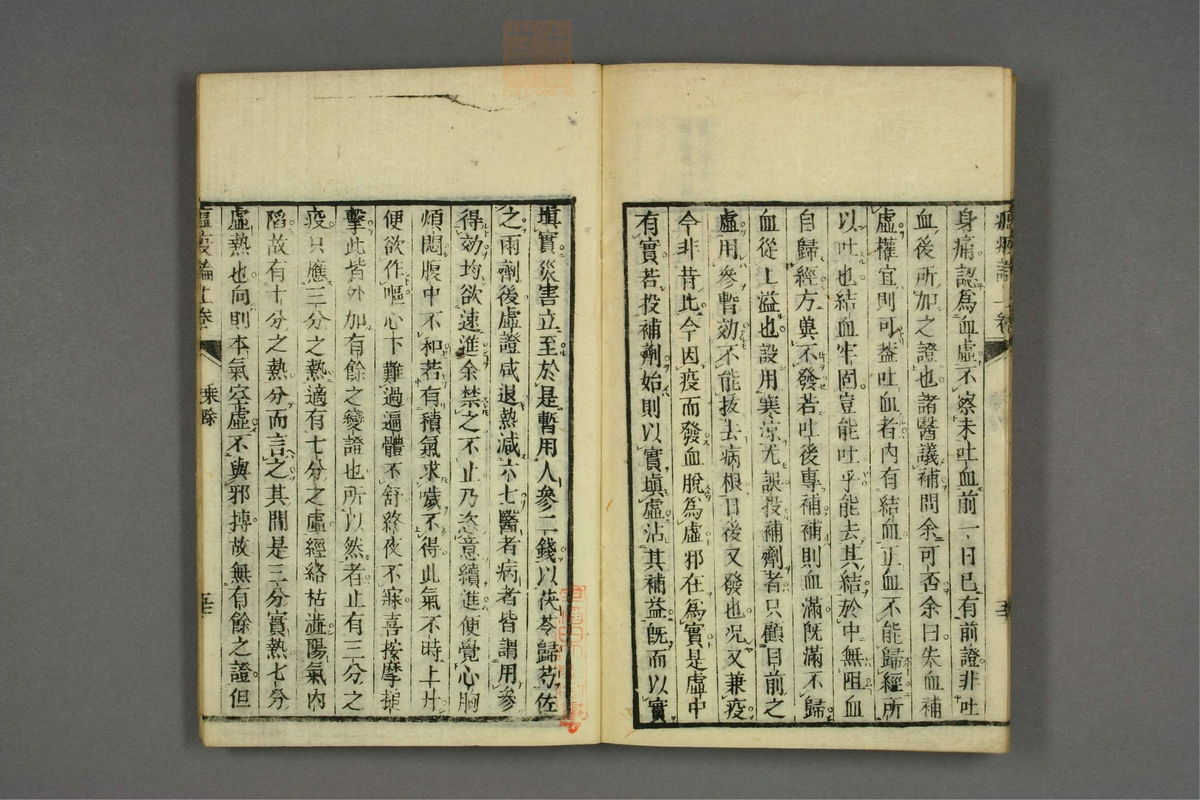 身痛認爲血虛不察未吐血前一日已有前證非吐
血後所加之證也諸醫議補問余可否余曰失血補
虛權宜則可葢吐血者內有結血正血不能歸經所
以吐也結血牢固豈能吐乎能去其結於中無阻血
自歸經方兾不發若吐後專補補則血滿旣滿不歸
血從上溢也設用寒涼尤誤投補劑者只顧目前之
虛用參暫効不能拔去病根日後又發也况又兼疫
今非昔比今因疫而發血脫爲虛邪在爲實是虛中
有實若投補劑始則以實塡虛沾其補益旣而以實
塡實災害立至於是暫用人參二錢以茯苓歸芍佐
之兩劑後虛證咸退熱減六七醫者病者皆謂用參
得効均欲速進余禁之不止乃恣意續進便覺心胸
煩悶腹中不和若有積氣求噦不得此氣不時上升
便欲作嘔心下難過遍體不舒終夜不寐喜按摩搥
擊此皆外加有餘之變證也所以然者止有三分之
疫只應三分之熱適有七分之虛經絡枯澁陽氣內
陷故有十分之熱分而言之其間是三分實熱七分
虛熱也向則本氣空虛不與邪搏故無有餘之證但
瘟疫論上卷